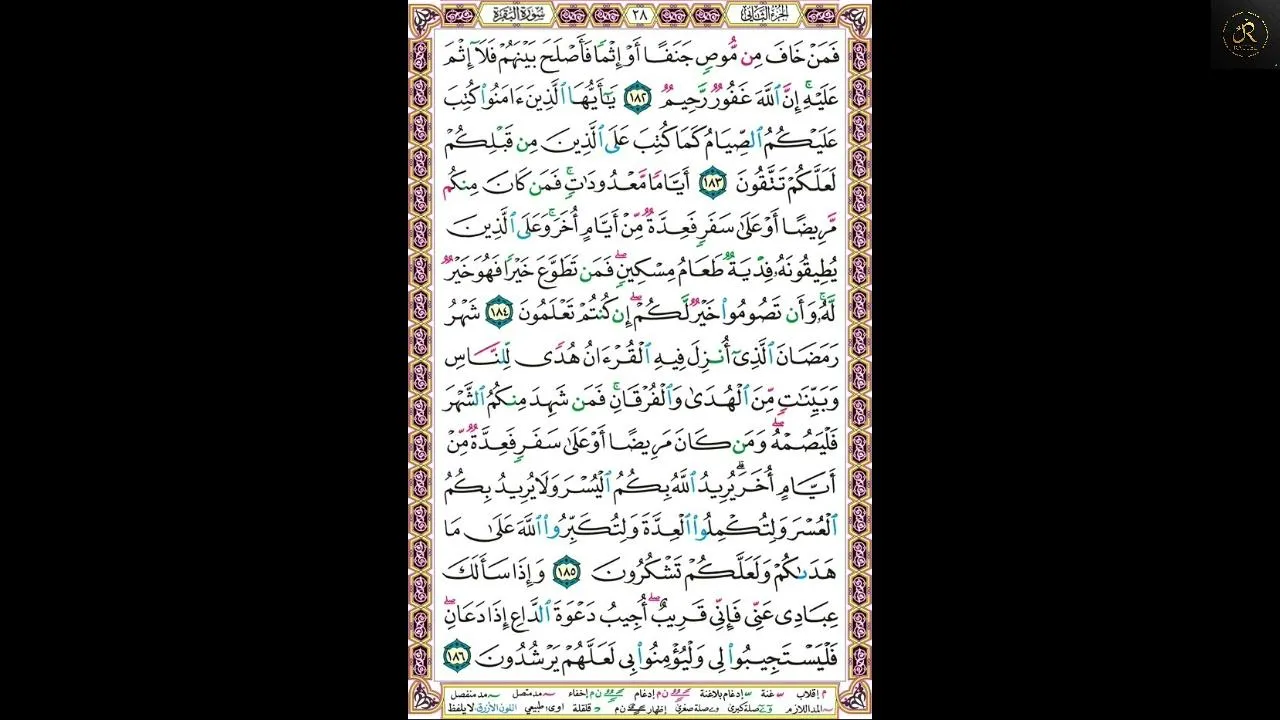 الجزء الثاني ٢٨ سورة البقرة
فَمَنْ خَافَ مِن مُّوصٍ جَنَفًا أَوْ إِثْمًا فَأَصْلَحَ بَيْنَهُمْ فَلَآ إِثْمَ
عَلَيْهِ ۚ إِنَّ ٱللَّهَ غَفُورٌ رَّحِيمٌ ١٨٢ يَـٰٓأَيُّهَا ٱلَّذِينَ ءَامَنُوا۟ كُتِبَ
عَلَيْكُمُ ٱلصِّيَامُ كَمَا كُتِبَ عَلَى ٱلَّذِينَ مِن قَبْلِكُمْ
لَعَلَّكُمْ تَتَّقُونَ ١٨٣ أَيَّامًا مَّعْدُودَٰتٍ ۚ فَمَن كَانَ مِنكُم
مَّرِيضًا أَوْ عَلَىٰ سَفَرٍ فَعِدَّةٌ مِّنْ أَيَّامٍ أُخَرَ ۚ وَعَلَى ٱلَّذِينَ
يُطِيقُونَهُۥ فِدْيَةٌ طَعَامُ مِسْكِينٍ ۖ فَمَن تَطَوَّعَ خَيْرًا فَهُوَ خَيْرٌ
لَّهُۥ ۚ وَأَن تَصُومُوا۟ خَيْرٌ لَّكُمْ ۖ إِن كُنتُمْ تَعْلَمُونَ ١٨٤ شَهْرُ
رَمَضَانَ ٱلَّذِىٓ أُنزِلَ فِيهِ ٱلْقُرْءَانُ هُدًى لِّلنَّاسِ
وَبَيِّنَـٰتٍ مِّنَ ٱلْهُدَىٰ وَٱلْفُرْقَانِ ۚ فَمَن شَهِدَ مِنكُمُ ٱلشَّهْرَ
فَلْيَصُمْهُ ۖ وَمَن كَانَ مَرِيضًا أَوْ عَلَىٰ سَفَرٍ فَعِدَّةٌ مِّنْ
أَيَّامٍ أُخَرَ ۗ يُرِيدُ ٱللَّهُ بِكُمُ ٱلْيُسْرَ وَلَا يُرِيدُ بِكُمُ
ٱلْعُسْرَ وَلِتُكْمِلُوا۟ ٱلْعِدَّةَ وَلِتُكَبِّرُوا۟ ٱللَّهَ عَلَىٰ مَا
هَدَىٰكُمْ وَلَعَلَّكُمْ تَشْكُرُونَ ١٨٥ وَإِذَا سَأَلَكَ
عِبَادِى عَنِّى فَإِنِّى قَرِيبٌ ۖ أُجِيبُ دَعْوَةَ ٱلدَّاعِ إِذَا دَعَانِ ۖ
فَلْيَسْتَجِيبُوا۟ لِى وَلْيُؤْمِنُوا۟ بِى لَعَلَّهُمْ يَرْشُدُونَ ١٨٦
م إقلاب غنة إدغام بلاغنة ن م إدغام ن م إخفاء مد متصل مد منفصل
المد اللازم صلة كبرى صلة صغرى إظهار ن م قلقلة اوى طبيعي اللون الأزرق لا يلفظ